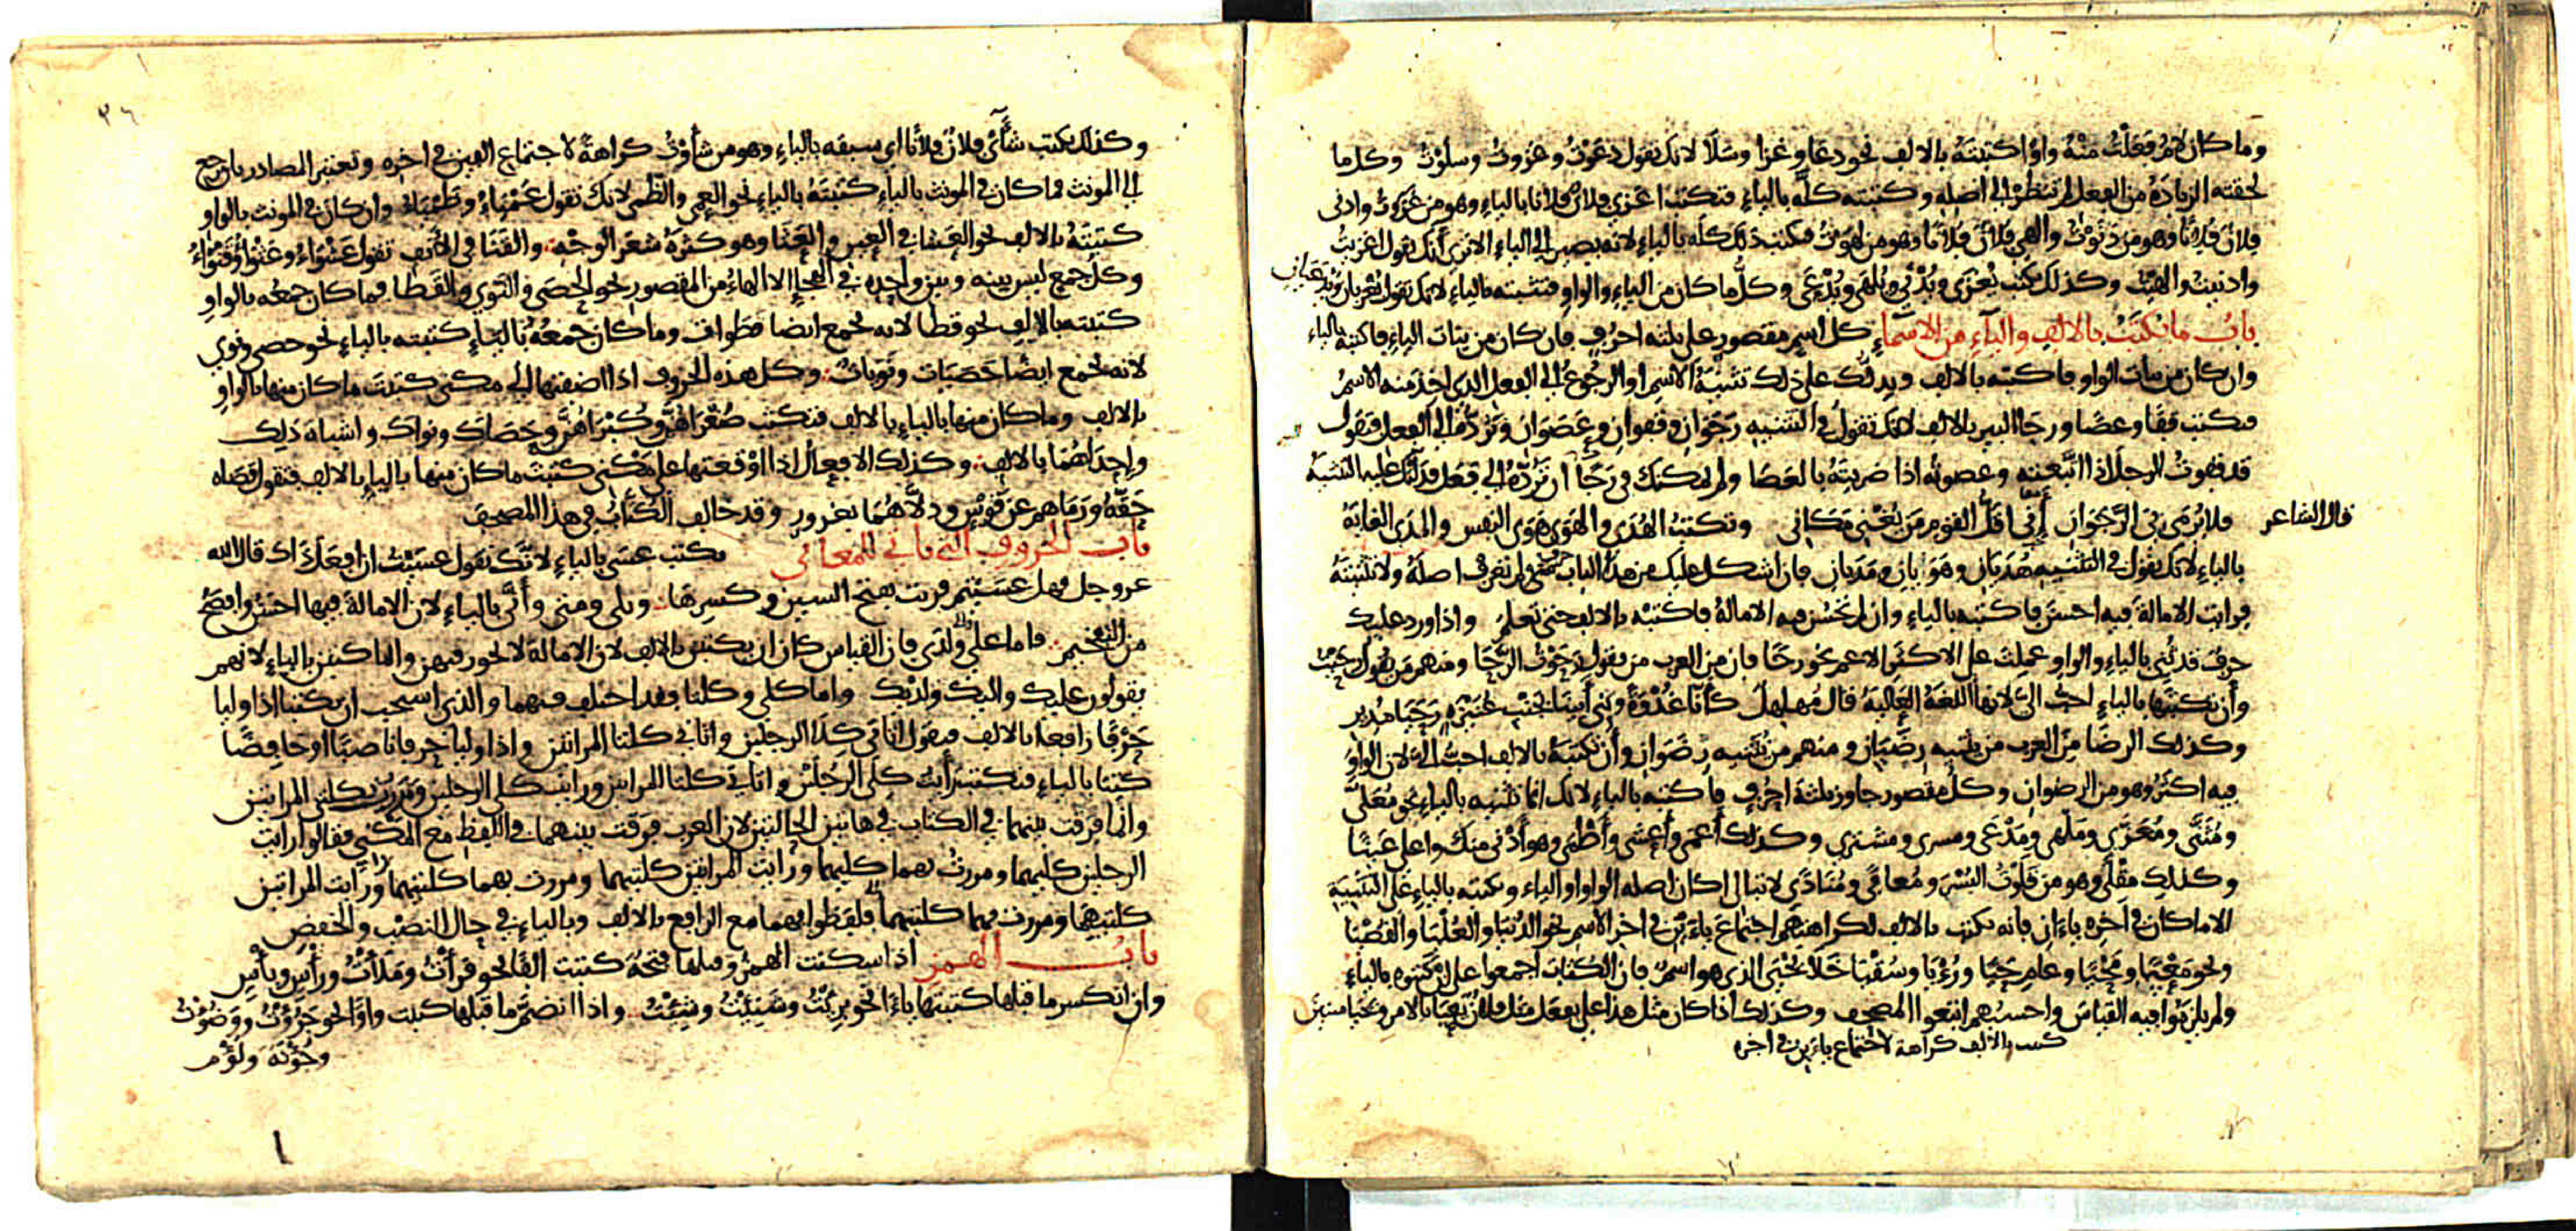 وما كان لام فعلت منه واوا كتبته بالالف نحو دعا وغزا وسلا لانك تقول دعوت وغزوت وسلوت وكل ما
لحقته الزيادة من الفعل لم تنظر الى اصله وكتبته كله بالياء فتكتب اغزى فلان فلانا بالياء وهو من غزوت وادنى
فلان فلانا وهو من دنوت والهى فلان فلانا وهو من لهوت فتكتب ذلك كله بالياء لانه يصير الى الياء الا ترى انك تقول اغزيت
وادنيت والهيت وكذلك تكتب يغزى ويدنى ويلهى ويدعى وكل ما كان من الياء والواو فتثنيته بالياء لانك تقول يغزيان ويدعيان
باب ما يكتب بالالف والياء من الاسماء كل اسم مقصور على ثلثة احرف فان كان من بنات الياء فاكتبه بالياء
وان كان من بنات الواو فاكتبه بالالف ويدلك على ذلك تثنية الاسم او الرجوع الى الفعل الذى اخذ منه الاسم
فتكتب قفا وعصا ورجا البير بالالف لانك تقول فى التثنيه رجوان وقفوان وعصوان وترده الى الفعل فتقول
قد قفوت الرجل اذا اتبعته وعصوته اذا ضربته بالعصا ولم يمكنك فى رجا ان ترده الى فعل فدلتك عليه التثنية
قال الشاعر فلا يرمى بى الرجوان انى اقل القوم من يغنى مكانى وتكتب الهدى والهوى هوى النفس والمدى الغاية
بالياء لانك تقول فى التثنيه هديان وهويان ومديان فان اشكل عليك من هذا الباب حرف ولم تعرف اصله ولا تثنيته
فرايت الامالة فيه احسن فاكتبه بالياء وان لم تحسن فيه الامالة فاكتبه بالالف حتى تعلم واذا ورد عليك
حرف قد ثنى بالياء والواو عملت على الاكثر الاعم نحو رحا فان من العرب من يقول رحوت الرحا ومنهم من يقول رحيت
وأن تكتبها بالياء احب الى لانها اللغة العالية قال مهلهل كأنا غدوة وبنى أبينا بجنب عنيزة رحيا مدير
وكذلك الرضا من العرب من يثنيه رضيان ومنهم من يثنيه رضوان وأن تكتبه بالالف احب الى لان الواو
فيه اكثر وهو من الرضوان وكل مقصور جاوز ثلثة احرف فاكتبه بالياء لانك انما تثنيه بالياء نحو معلى
ومثنى ومغزى وملهى ومدعى ومسرى ومشترى وكذلك أعمى وأعشى وأظمى وهو أدنى منك واعلى عينا
وكذلك مقلى وهو من قلوت البسر ومعافى ومنادى لا تبال اكان اصله الواو او الياء وتكتبه بالياء على التثنية
الا ما كان فى اخره ياءان فانه يكتب بالالف لكراهيتهم اجتماع ياءين فى اخر الاسم نحو الدنيا والعليا والقصيا
ونحو معيا ومحيا وعام حيا ورؤيا وسقيا خلا يحيى الذى هو اسم فان الكتاب اجمعوا على ان كتبوه بالياء
ولم يلزموا فيه القياس واحسبهم اتبعوا المصحف وكذلك اذا كان مثل هذا على يفعل مثل فلان يعيا بالامر ويحيا سنين
كتب بالالف كراهة لاجتماع ياءين فى اخره
٣٦
وكذلك يكتب شأى فلان فلانا اى سبقه بالياء وهو من شأوت كراهة لاجتماع الفين فى اخره وتعتبر المصادر بان يرجع
الى المونث فما كان فى المونث بالياء كتبته بالياء نحو العمى والظمى لانك تقول عمياء وظمياء وان كان فى المونث بالواو
كتبته بالالف نحو العشا فى العين والعثا وهو كثرة شعر الوجه والقنا فى الأنف تقول عشواء وعثواء وقنواء
وكل جمع ليس بينه وبين واحده فى الهجاء الا الهاء من المقصور نحو الحصى والنوى والقطا فما كان جمعه بالواو
كتبته بالالف نحو قطا لانه يجمع ايضا قطوات وما كان جمعه بالياء كتبته بالياء نحو حصى ونوى
لانه يجمع ايضا حصيات ونويات وكل هذه الحروف اذا اضفتها الى مكنى كتبت ما كان منها بالواو
بالالف وما كان منها بالياء بالالف فتكتب صغراهن وكبراهن وحصاك ونواك واشباه ذلك
واحداهما بالالف وكذلك الافعال اذا اوقعتها على مكنى كتبت ما كان منها بالياء بالالف فتقول قضاه
حقه ورماهم عن قوس ودلاهما بغرور وقد خالف الكتاب فى هذا المصحف
باب الحروف التى تاتى للمعانى تكتب عسى بالياء لانك تقول عسيت ان افعل ذاك قال الله
عز وجل فهل عسيتم قريت بفتح السين وكسرها وبلى ومتى وأنى بالياء لان الامالة فيها احسن وافصح
من التفخيم فاما على ولدى فان القياس كان ان يكتبن بالالف لان الامالة لا تجوز فيهن وانما كتبن بالياء لانهم
يقولون عليك واليك ولديك واما كلى وكلتا فقد اختلف فيهما والذى استحب ان يكتبا اذا وليا
حرفا رافعا بالالف فتقول اتانى كلا الرجلين واتانى كلتا المراتين واذا وليا حرفا ناصبا او خافضا
كتبا بالياء فتكتب رأيت كلى الرجلين واتانى كلتا المراتين ورايت كلى الرجلين ومررت بكلتى المراتين
وانما فرقت بينهما فى الكتاب فى هاتين الحالتين لان العرب فرقت بينهما فى اللفظ مع المكنى فقالوا رايت
الرجلين كليهما ومررت بهما كليهما ورايت المراتين كلتيهما ومررت بهما كلتيهما ورايت المراتين
كلتيهما ومررت بهما كلتيهما فلفظوا بهما مع الرافع بالالف وبالياء فى حال النصب والخفض
باب الهمز اذا سكنت الهمزة وقبلها فتحة كتبت الفا نحو قرأت وملأت ورأس وبأس
وان انكسر ما قبلها كتبتها ياء نحو برئت وشنئت وشئت واذا انضم ما قبلها كتبت واوا نحو جرؤت ووضؤت
وجؤنة ولؤم